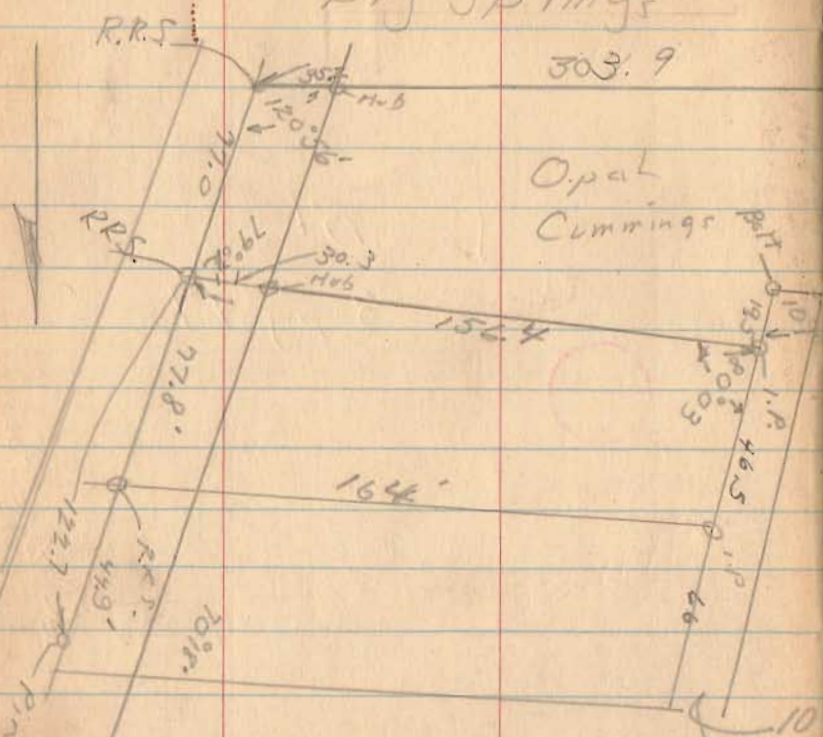 Big Springs
R.R.S.
303.9
35.
Hub
120°56'
77.0
Opal
Cummings
Bolt
R.R.S.
79°
30.3
Hub
156.4
19.5
10'
100°03
I.P.
77.8'
46.5
164'
I.P.
R.R.S.
122.7
44.9'
66
70°18'
Pin
10